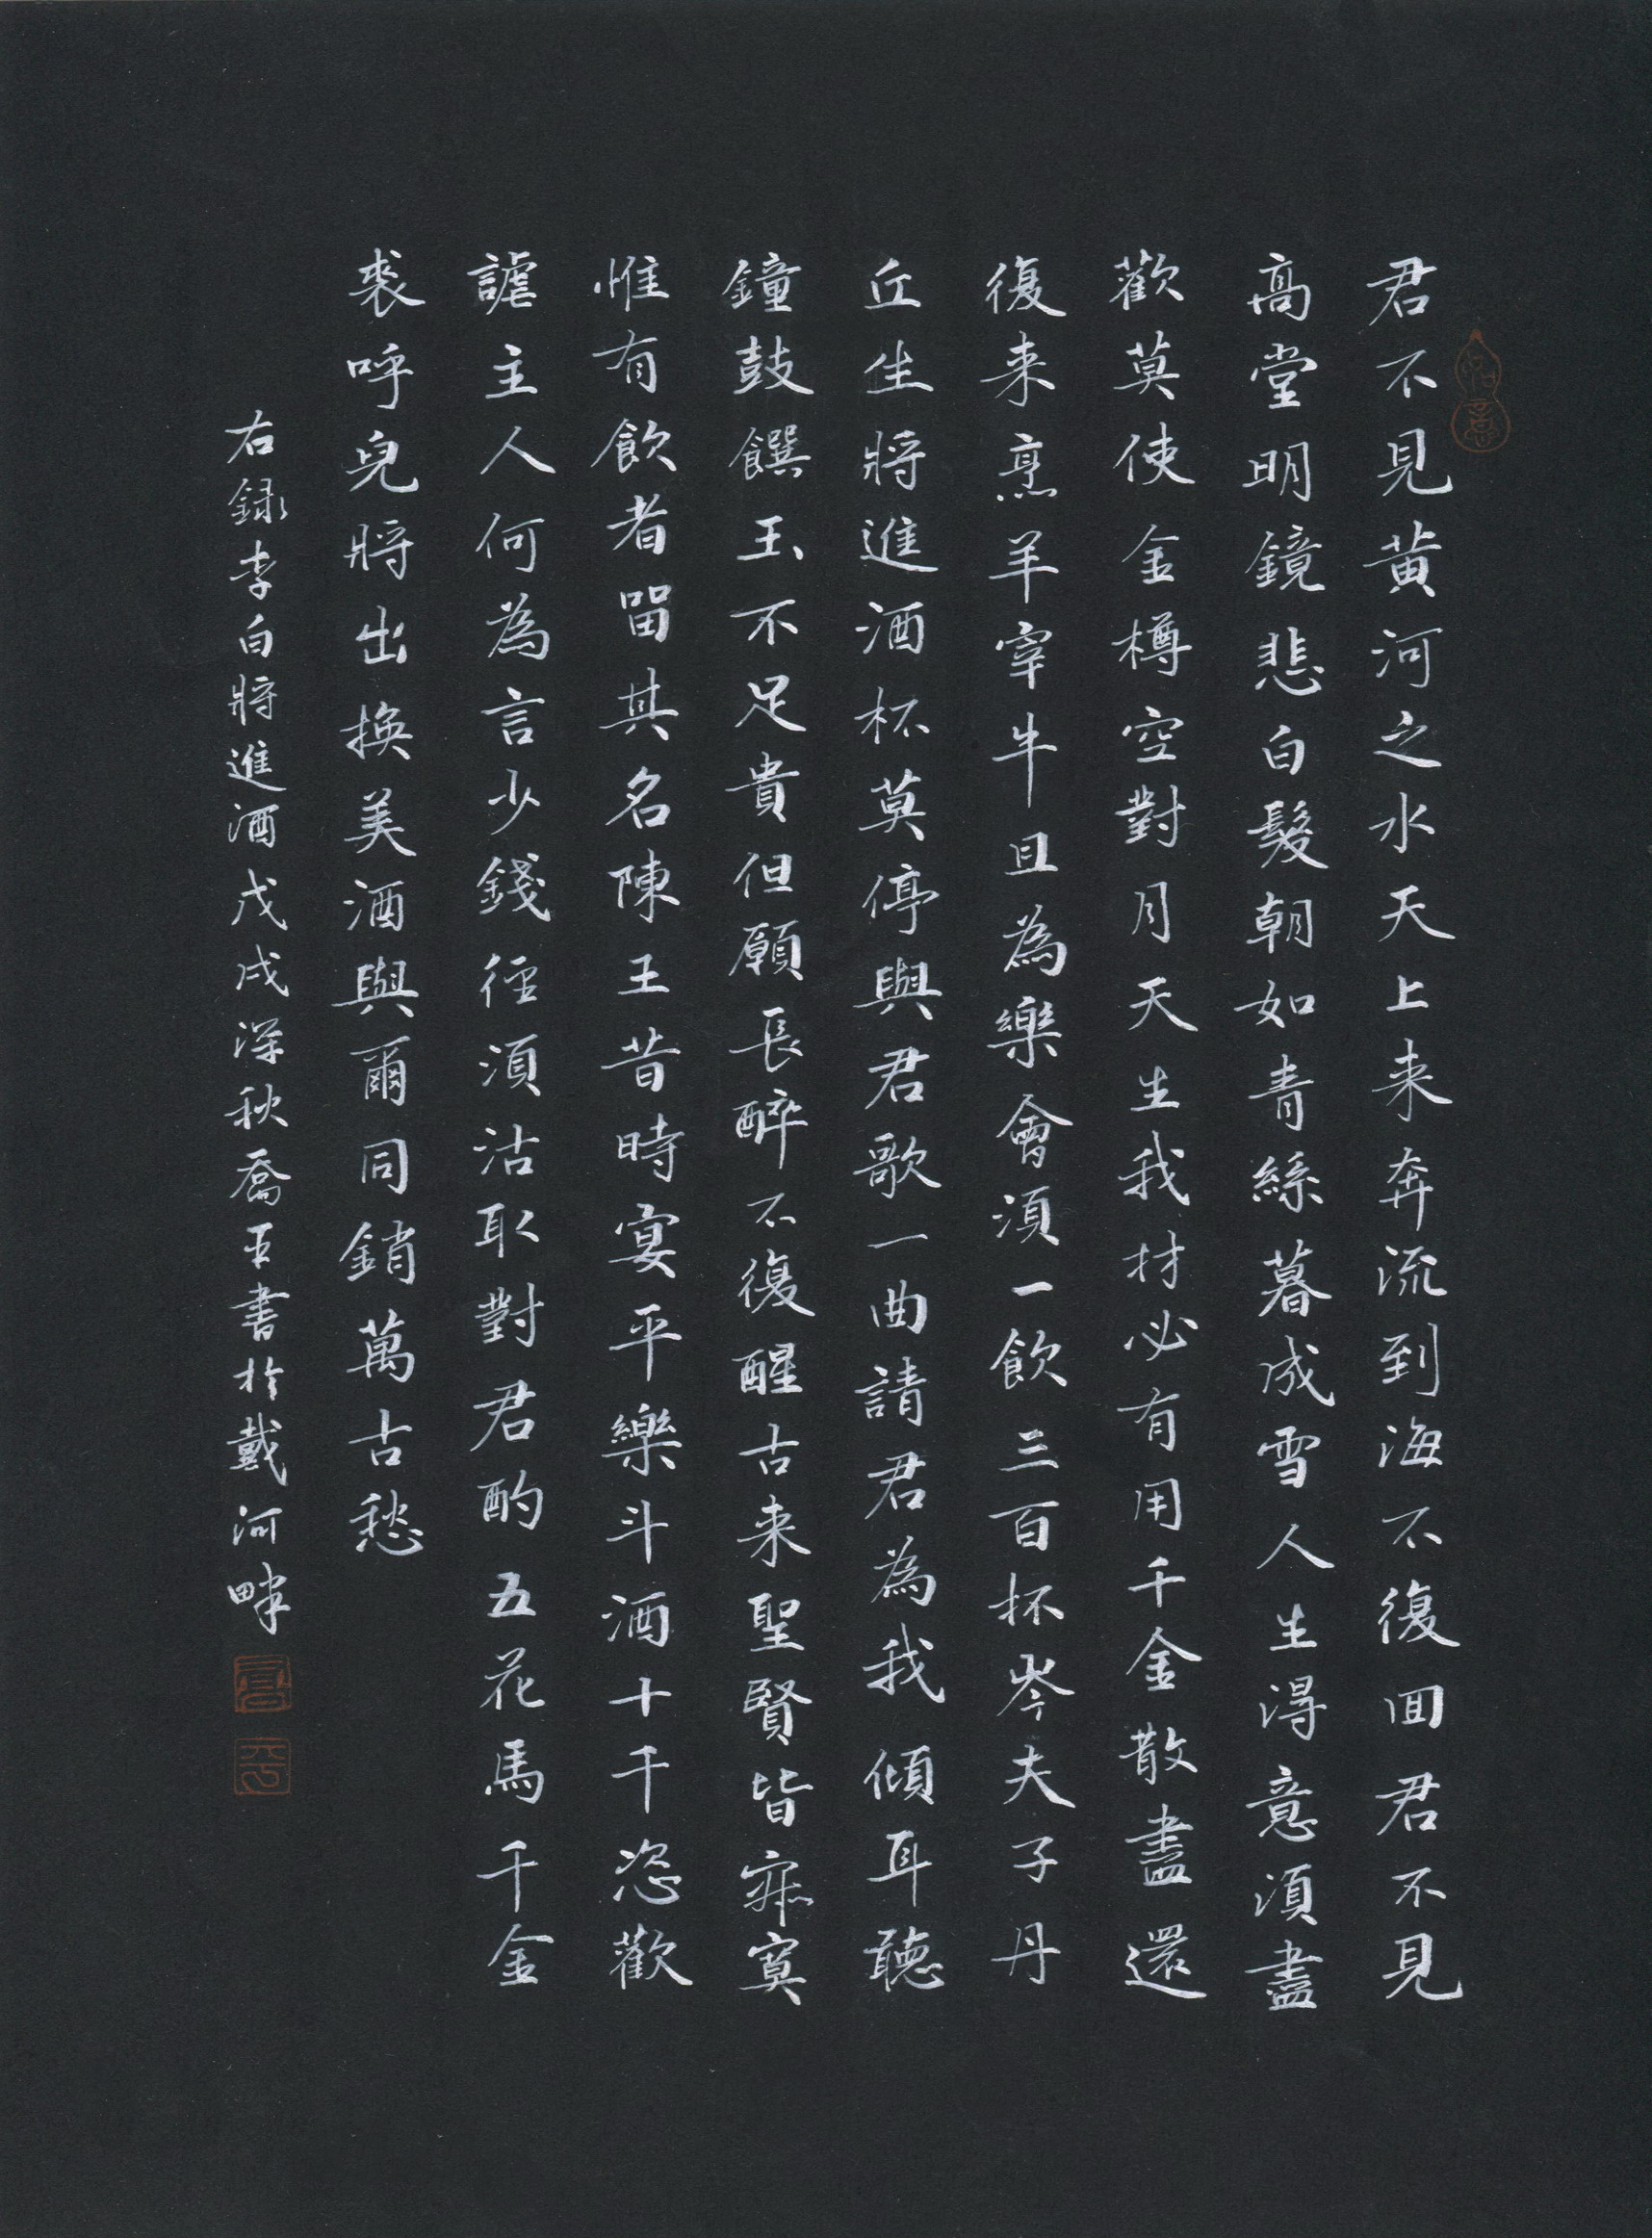 君不見黃河之水天上来奔流到海不復回君不見
高堂明鏡悲白髮朝如青絲暮成雪人生得意須盡
歡莫使金樽空對月天生我材必有用千金散盡還
復来烹羊宰牛且為樂會須一飲三百杯岑夫子丹
丘生將進酒杯莫停與君歌一曲請君為我傾耳聽
鐘鼓饌玉不足貴但願長醉不復醒古来聖賢皆寂寞
惟有飲者留其名陳王昔時宴平樂斗酒十千恣歡
謔主人何為言少錢徑須沽取對君酌五花馬千金
裘呼兒將出換美酒與爾同銷萬古愁
右録李白將進酒戊戌深秋喬平書於戴河畔